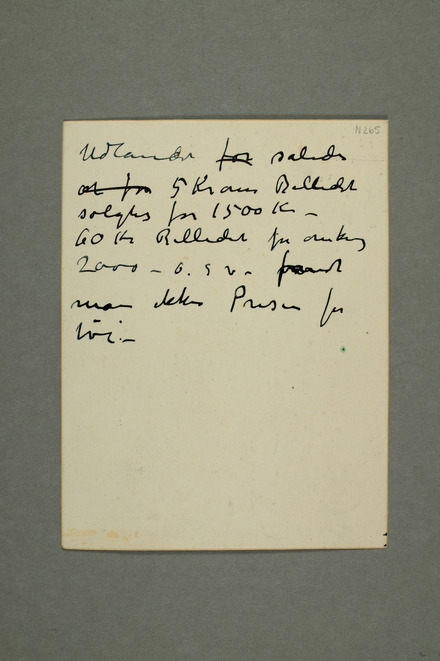 N265
Udlandet for saledes
at for 5 Krones Billedet
solgtes for 1500 Kr –
60 Kr Billedet for omkring
2000 – o. s. v.
man ikke Prisen for